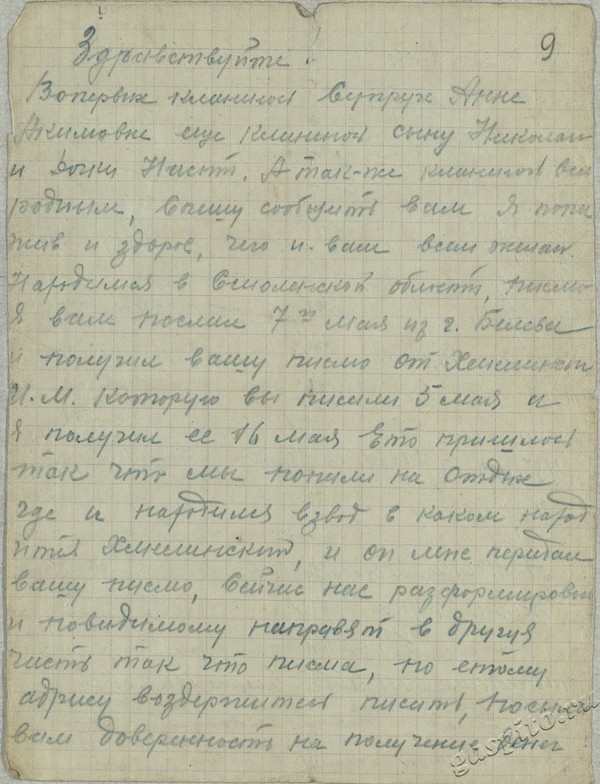 9
Здравствуйте!
Вопервых кланиюсь Супруге Анне
Якимовне еще кланиюсь сыну Николаю
и дочки Насти. А так-же кланиюсь всем
родным, Спешу сообщить вам я пока
жив и здоров, чего и вам всем желаю.
Народимся в Смоленской области, письмо
я вам послал 7го мая из г. Белева
и получил вашу писмо от Хмелинског
И.М. Которую вы писали 5 мая а
я получил ее 16 мая Ето пришлось
так что мы попали на отдых
где и народился взвод в каком народ
ится Хмелинский, и он мне передал
вашу писмо, Сейчас нас разформировали
и повидимому направят в другуя
часть так что писма, по етому
адрису воздержитесь писать, посыл
вам доверенность на получение денег
gaspito.ru